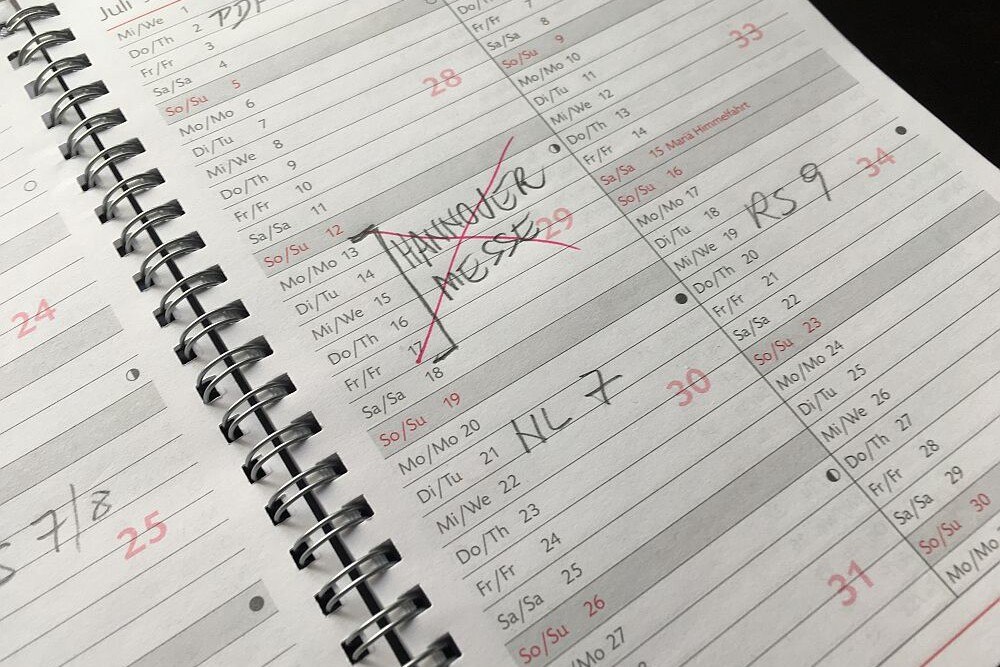 24
7/8
25
Juli
Mi/We 1
Do/Th 2 PDF
Fr/Fr 3
Sa/Sa 4
So/Su 5
Mo/Mo 6 28
Di/Tu 7
Mi/We 8
Do/Th 9
Fr/Fr 10
Sa/Sa 11
So/Su 12
Mo/Mo 13 HANNOVER 29
Di/Tu 14 MESSE
Mi/We 15
Do/Th 16
Fr/Fr 17
Sa/Sa 18
So/Su 19
Mo/Mo 20 30
Di/Tu 21 NL 7
Mi/We 22
Do/Th 23
Fr/Fr 24
Sa/Sa 25
So/Su 26
Mo/Mo 27 31
Do/Th
Fr/Fr 7
Sa/Sa 8
So/Su 9
Mo/Mo 10 33
Di/Tu 11
Mi/We 12
Do/Th 13
Fr/Fr 14
Sa/Sa 15 Mariä Himmelfahrt
So/Su 16
Mo/Mo 17 34
Di/Tu 18
Mi/We 19 RS 9
Do/Th 20
Fr/Fr 21
Sa/Sa 22
So/Su 23
Mo/Mo 24
Di/Tu 25
Mi/We 26
Do/Th 27
Fr/Fr 28
Sa/Sa 29
So/Su 30
Mo/Mo